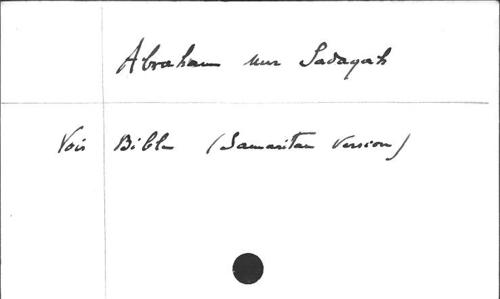 Abraham Nur Sadaqah
Vois Bible (Samaritan Version)